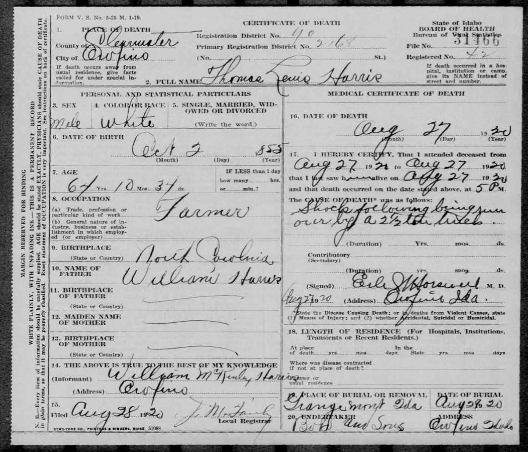 FORM V. S. No. 5-25 M. 1-19.
CERTIFICATE OF DEATH
State of Idaho
BOARD OF HEALTH
Bureau of Vital Statistics
1. PLACE OF DEATH
County of Clearwater
City of Orofino
Registration District No. 90
Primary Registration District No.
(No. St.)
File No. 31466
Registered No.
If death occurs away from usual residence, give facts called for under special information.
If death occurred in a hospital, institution or camp, give its NAME instead of street and number.
2. FULL NAME Thomas Lewis Harris
PERSONAL AND STATISTICAL PARTICULARS
3. SEX
Male
4. COLOR OR RACE
White
5. SINGLE, MARRIED, WIDOWED OR DIVORCED
(Write the word.)
6. DATE OF BIRTH
Oct 2 855
(Month) (Day) (Year)
7. AGE
64 Yrs. 10 Mos. ds.
IF LESS than 1 day
how many hrs.
or min.
8. OCCUPATION
(a) Trade, profession or particular kind of work
(b) General nature of industry, business or establishment in which employed (or employer)
Farmer
9. BIRTHPLACE
(State or Country)
North Carolina
10. NAME OF FATHER
William Harris
11. BIRTHPLACE OF FATHER
(State or Country)
12. MAIDEN NAME OF MOTHER
13. BIRTHPLACE OF MOTHER
(State or Country)
14. THE ABOVE IS TRUE TO THE BEST OF MY KNOWLEDGE
(Informant) William McKinley Harris
(Address) Orofino
15.
Filed Aug 28 1920
Local Registrar
MEDICAL CERTIFICATE OF DEATH
16. DATE OF DEATH
Aug 27 1920
(Month) (Day) (Year)
17. I HEREBY CERTIFY, That I attended deceased from
Aug 27 1920 to Aug 27 1920
that I last saw h alive on Aug 27 1920
and that death occurred on the date stated above, at 5 P M.
The CAUSE OF DEATH* was as follows:
Shock following being run
over by a 2½ ton truck.
(Duration) Yrs. mos. ds.
Contributory
(Secondary)
(Duration) Yrs. mos. ds.
(Signed) M. D.
(Address) Orofino Ida.
*State the Disease Causing Death; or in deaths from Violent Causes, state (1) Means of Injury; and (2) whether Accidental, Suicidal or Homicidal.
18. LENGTH OF RESIDENCE (For Hospitals, Institutions, Transients or Recent Residents.)
At place of death yrs. mos. days. In the State yrs. mos. days
Where was disease contracted if not at place of death?
Former or usual residence
19. PLACE OF BURIAL OR REMOVAL
Grangemont Ida
DATE OF BURIAL
Aug 28 20
20. UNDERTAKER
and Sons
Orofino Idaho
MARGIN RESERVED FOR BINDING
WRITE PLAINLY, WITH UNFADING INK—THIS IS A PERMANENT RECORD